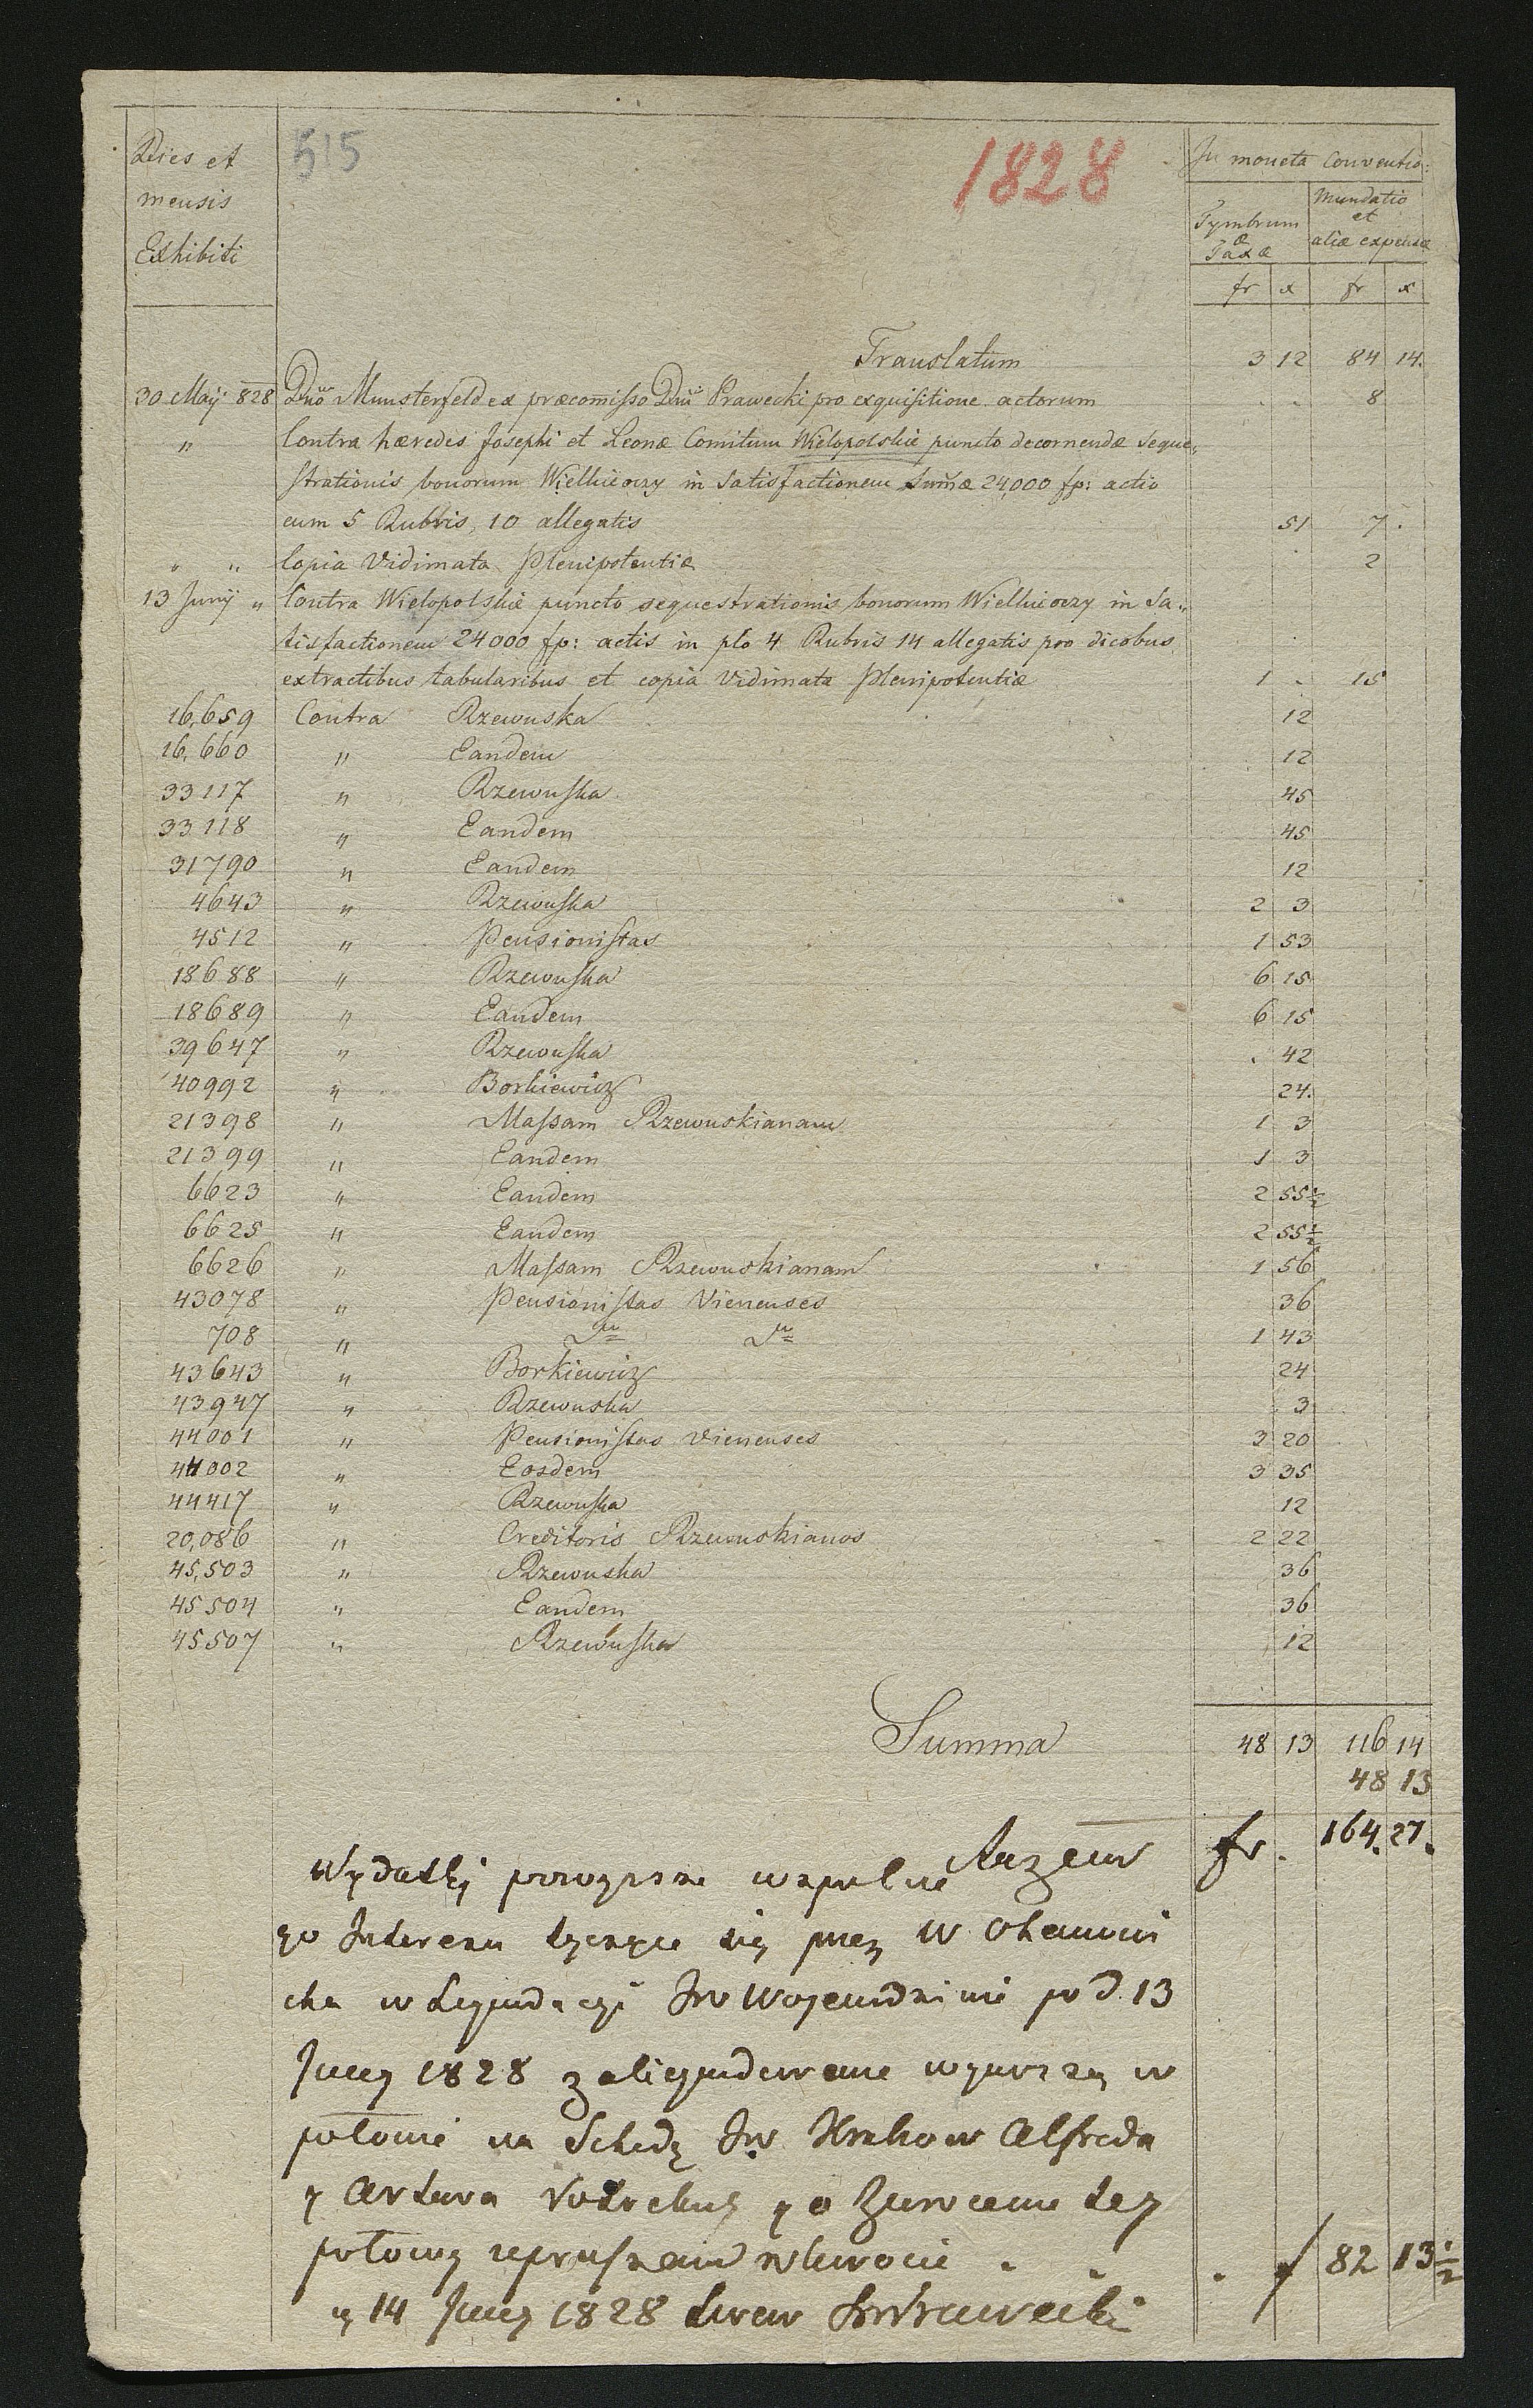 515
1828
Dies et
mensis
Exhibiti
In moneta Conventio:
Tymbrum
&
Taxæ
Mundatio
et
aliæ expensæ
fr x fr x
Translatum 3 12 84 14.
30 Maij 828 Dno Munsterfeld ex præcomisso Dni Prawecki pro exquisitione actorum . . 8
" Contra hæredes Josephi et Leonæ Comitum Wielopolskie puncto decernendæ seque„
strationis bonorum Wielkieoczy in Satisfactionem Sumæ 24,000 fp: actio
cum 5 Rubris, 10 allegatis 51 7 .
" " Copia Vidimata Plenipotentiæ 2
13 Junij " Contra Wielopolskie puncto sequestrationis bonorum Wielkieoczy in Sa„
tisfactionem 24000 fp: actis in plo 4 Rubris 14 allegatis pro duobus
extractibus tabularibus et copia Vidimata Plenipotentiæ 1 . 15
16,659 Contra Rzewuska 12
16,660 " Eandem 12
33117 " Rzewuska 45
33118 " Eandem 45
31790 " Eandem 12
4643 " Rzewuska 2 3
4512 " Pensionistas 1 53
18688 " Rzewuska 6 15
18689 " Eandem 6 15
39647 " Rzewuska . 42
40992 " Borkiewicz 24.
21398 " Massam Rzewuskianam 1 3
21399 " Eandem 1 3
6623 " Eandem 2 55½
6625 " Eandem 2 55½
6626 " Massam Rzewuskianam 1 56
43078 " Pensionistas Vienenses 36
708 " Do Do 1 43
43643 " Borkiewicz 24
43947 " Rzewuska 3
44001 " Pensionistas Vienenses 3 20
44002 " Eosdem 3 35
44417 " Rzewuska 12
20,086 " Creditoris Rzewuskianos 2 22
45,503 " Rzewuska 36
45504 " Eandem 36
45507 " Rzewuska 12
Summa 48 13 116 14
48 13
Razem fr. 164. 27.
Wydatki powyzsze wspulne
go Interesu tyczące się przez W
cha w Liquidacyi JW Wojewodzinie pod 13
Juny 1828 zaliquidowane wynoszą w
połowie na Schedę JW Hrabiow Alfreda
y Artura Potockich y o Zwrocenie tey
połowy upraszam w kwocie . . . f 82 13½
y 14 Juny 1828 Lwow